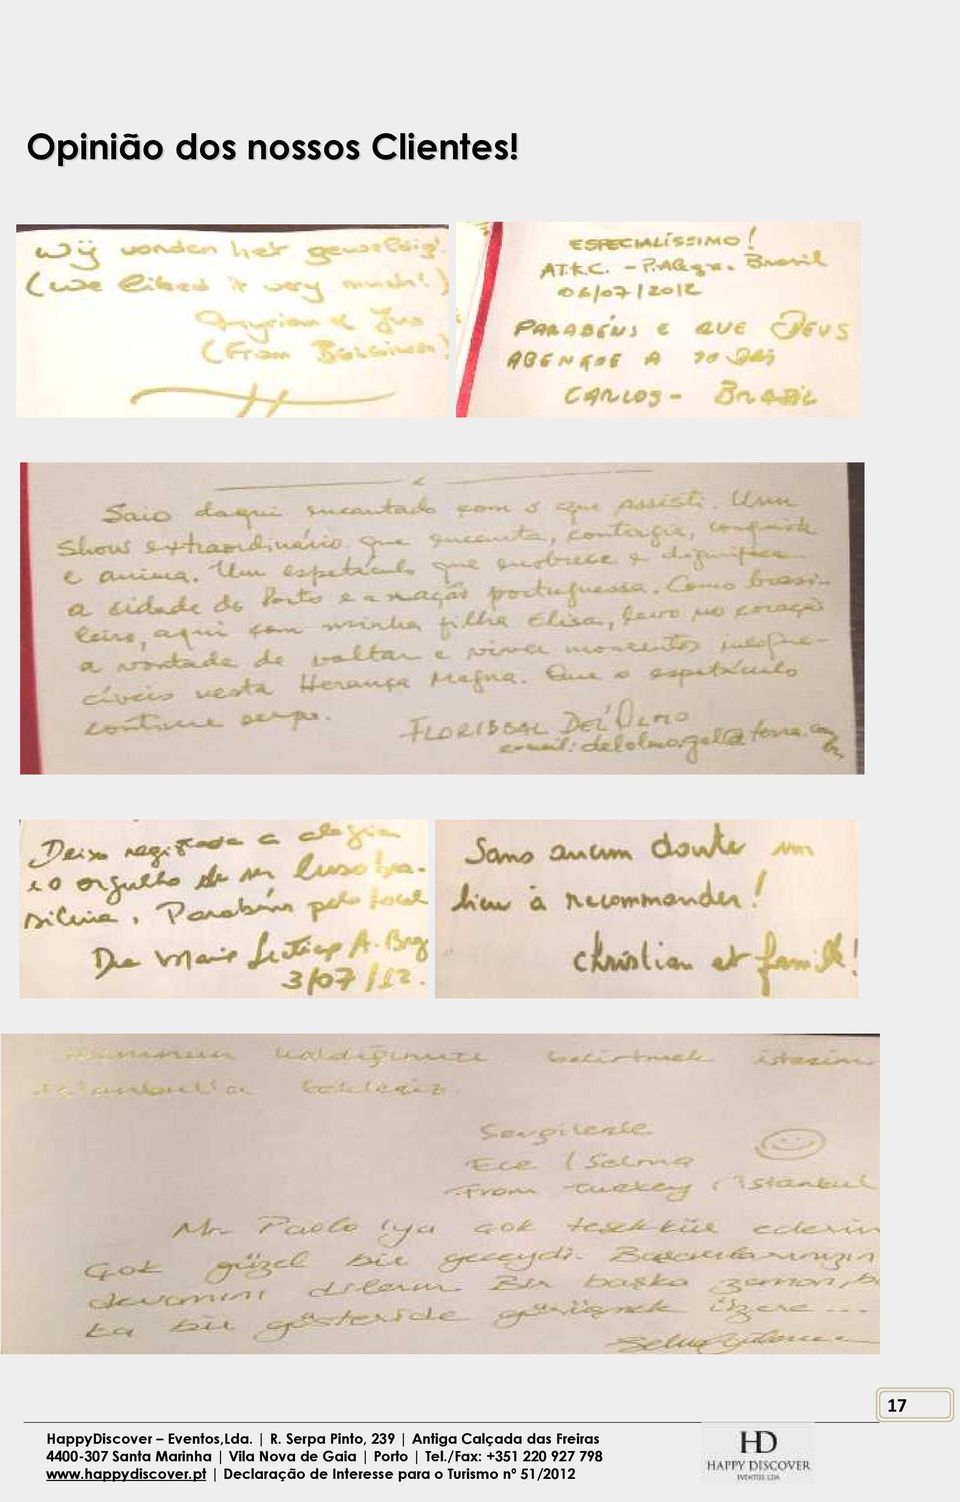 Opinião dos nossos Clientes!
Wij vonden het geweldig!
(we liked it very much!)
(From Belgium)
ESPECIALÍSSIMO!
AT.K.C. - P.Alegre. Brasil
06/07/2012
PARABÉNS E QUE DEUS
ABENÇOE A TODOS
CARLOS - BRASIL
Saio daqui encantado com o que assisti. Um
Show extraordinário que encanta, contagia, conquista
e anima. Um espetáculo que enobrece e dignifica
a cidade do Porto e a nação portuguesa. Como brasi-
leiro, aqui com minha filha Elisa, levo no coração
a vontade de voltar e viver momentos inesque-
cíveis nesta Herança Magna. Que o espetáculo
continue sempre.
FLORISBAL DEL'OLMO
e-mail: delolmo.gel@terra.com.br
Deixo registrada a alegria
e o orgulho de ser luso bra-
sileira. Parabéns pelo local
3/07/12.
Sans aucun doute un
lieu à recommander!
Christian et famille!
kaldığımızı belirtmek isterim.
İstanbul'a bekleriz.
Sevgilerle
Ece / Selma
From Turkey / İstanbul
Mr. Paolo'ya çok teşekkür ederim
Çok güzel bir geceydi. Başarılarınızın
devamını dilerim. Bir başka zaman, baş
ka bir gösteride görüşmek üzere ...
17
HappyDiscover – Eventos,Lda. | R. Serpa Pinto, 239 | Antiga Calçada das Freiras
4400-307 Santa Marinha | Vila Nova de Gaia | Porto | Tel./Fax: +351 220 927 798
www.happydiscover.pt | Declaração de Interesse para o Turismo nº 51/2012
HD
HAPPY DISCOVER
EVENTOS, LDA